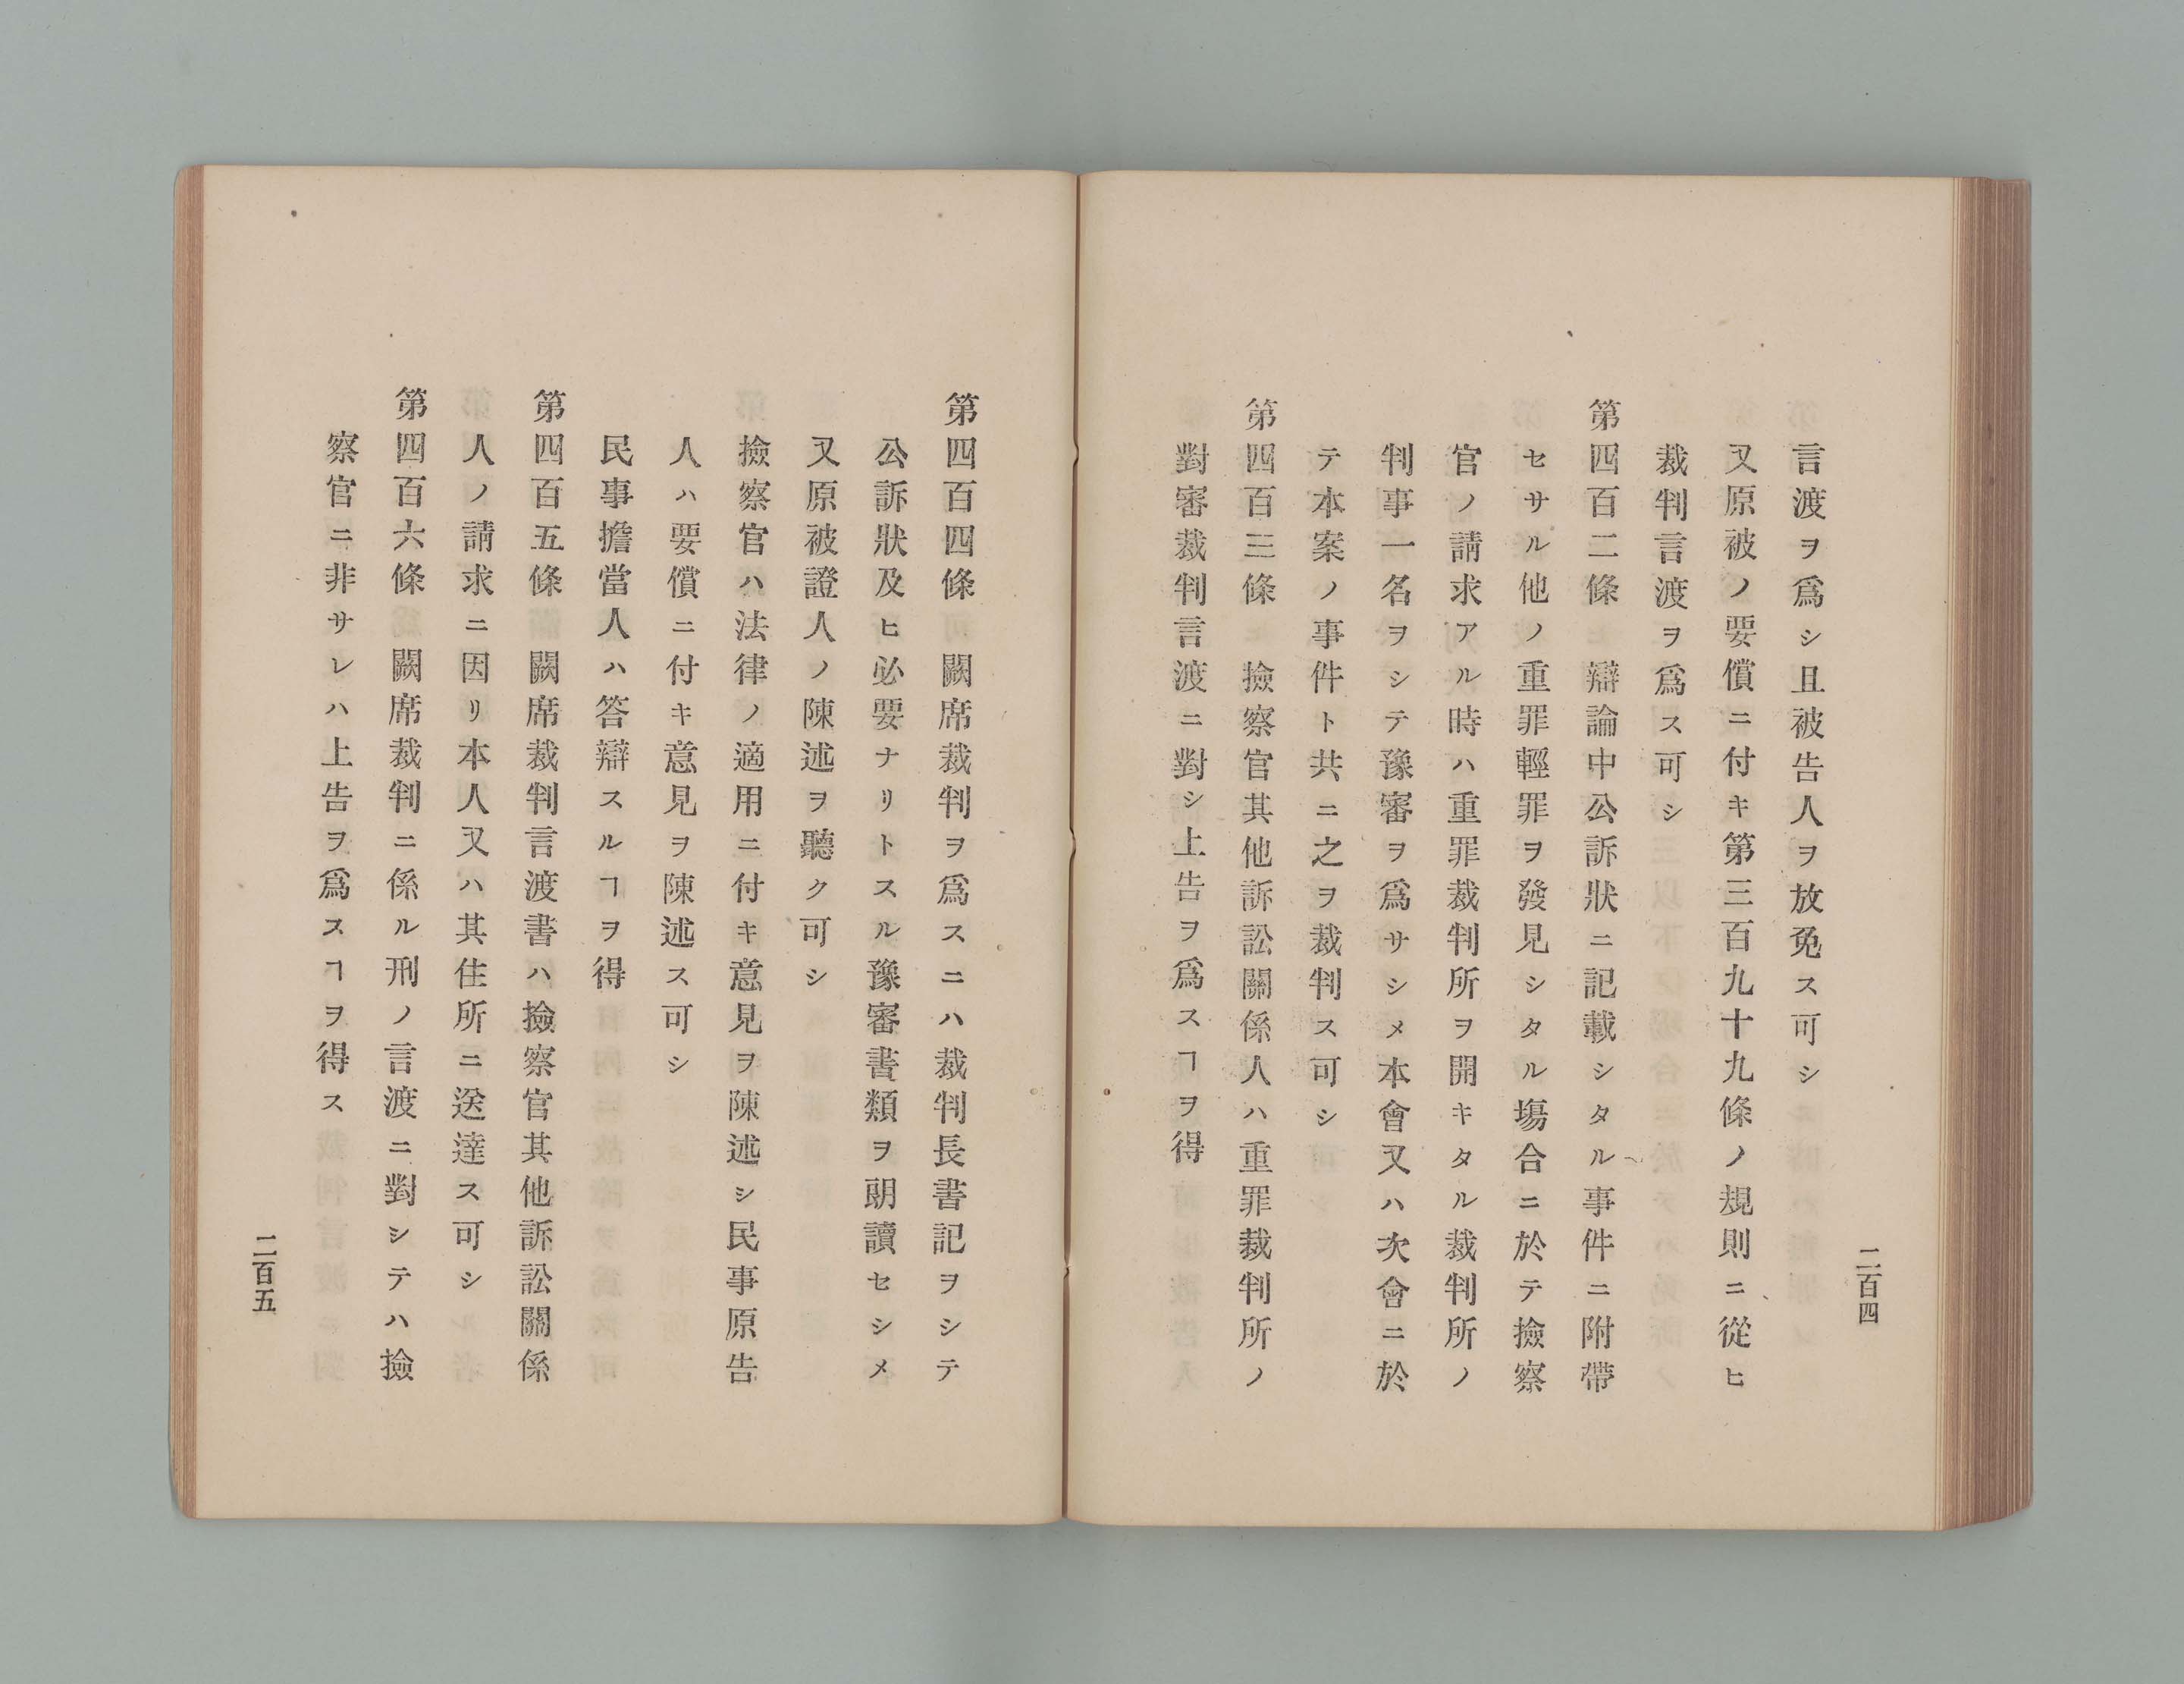 言渡ヲ爲シ且被告人ヲ放免ス可シ
又原被ノ要償ニ付キ第三百九十九條ノ規則ニ從ヒ
裁判言渡ヲ爲ス可シ
第四百二條　辯論中公訴狀ニ記載シタル事件ニ附帶
セサル他ノ重罪輕罪ヲ發見シタル塲合ニ於テ撿察
官ノ請求アル時ハ重罪裁判所ヲ開キタル裁判所ノ
判事一名ヲシテ豫審ヲ爲サシメ本會又ハ次會ニ於
テ本案ノ事件ト共ニ之ヲ裁判ス可シ
第四百三條　撿察官其他訴訟關係人ハ重罪裁判所ノ
對審裁判言渡ニ對シ上告ヲ爲スヿヲ得
二百四
第四百四條　闕席裁判ヲ爲スニハ裁判長書記ヲシテ
公訴狀及ヒ必要ナリトスル豫審書類ヲ朗讀セシメ
又原被證人ノ陳述ヲ聽ク可シ
撿察官ハ法律ノ適用ニ付キ意見ヲ陳述シ民事原告
人ハ要償ニ付キ意見ヲ陳述ス可シ
民事擔當人ハ答辯スルヿヲ得
第四百五條　闕席裁判言渡書ハ撿察官其他訴訟關係
人ノ請求ニ因リ本人又ハ其住所ニ送達ス可シ
第四百六條　闕席裁判ニ係ル刑ノ言渡ニ對シテハ撿
察官ニ非サレハ上告ヲ爲スヿヲ得ス
二百五